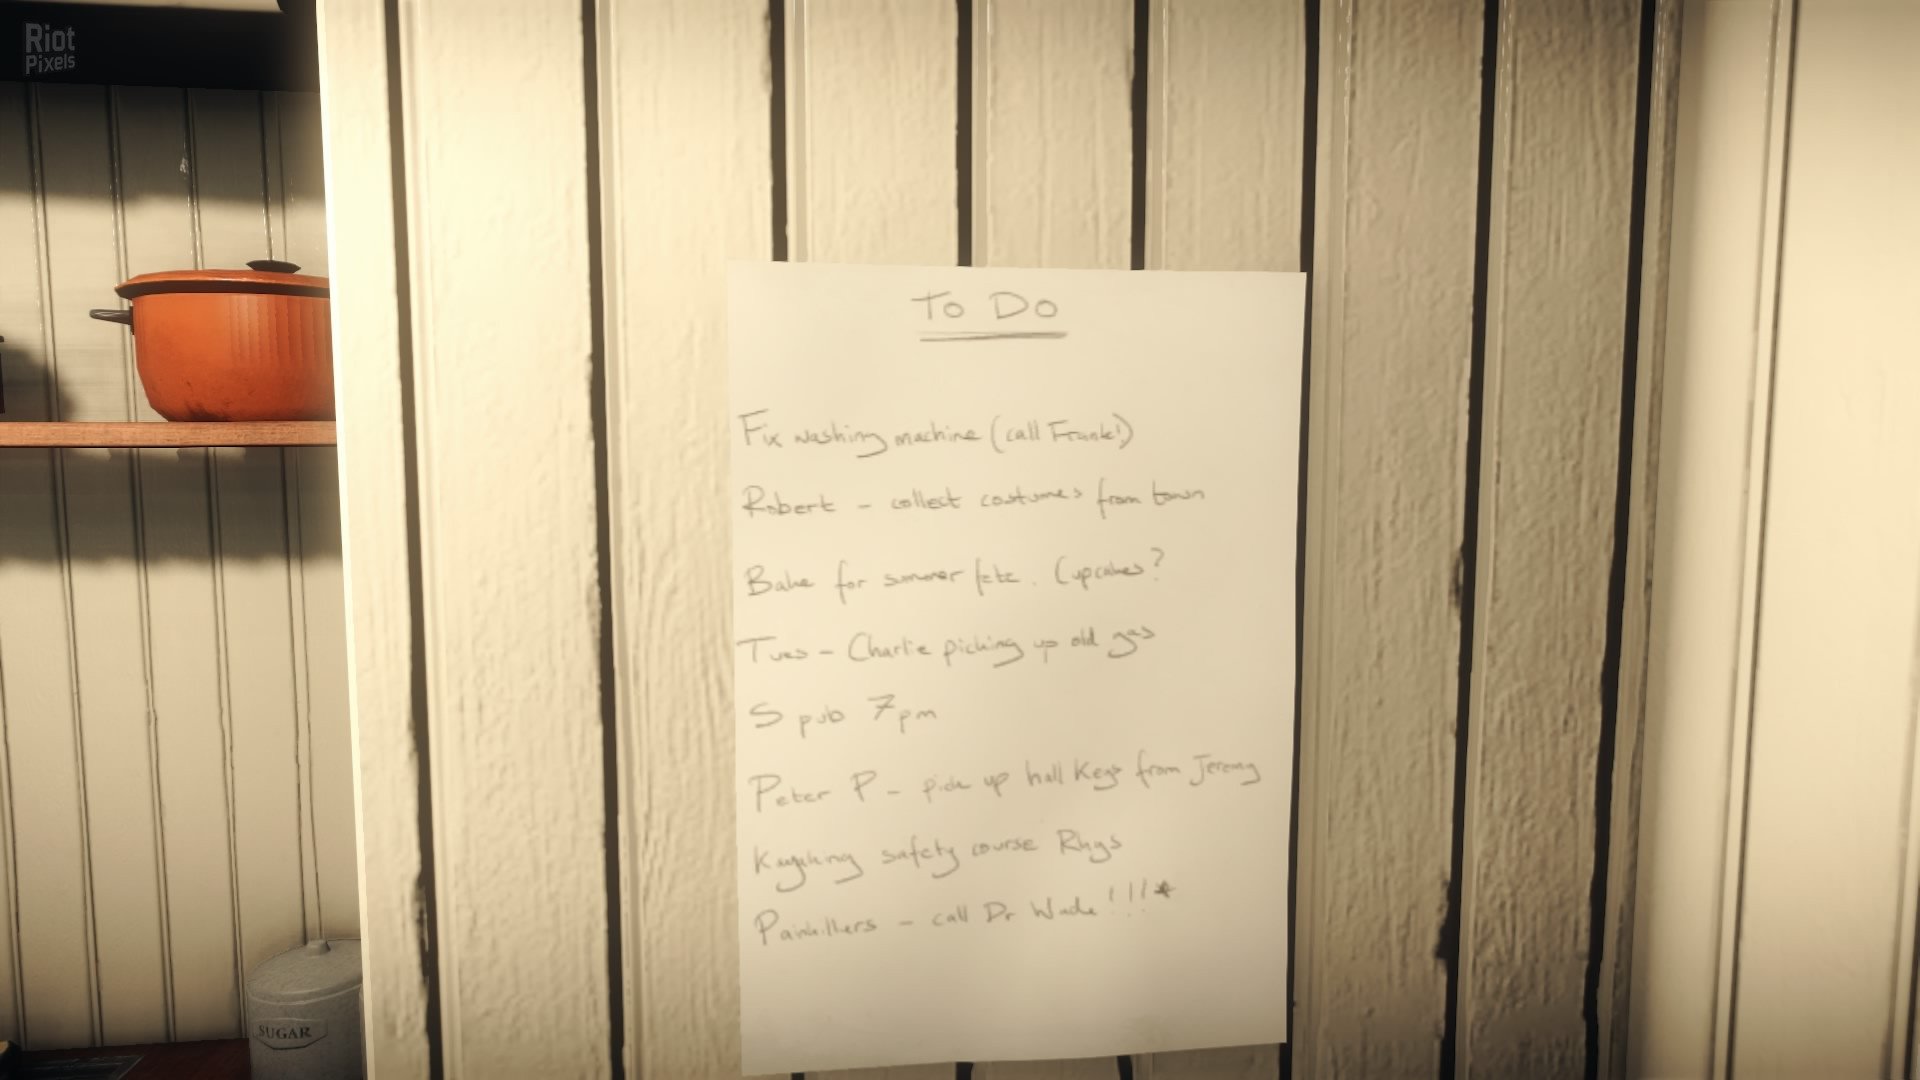 Riot
Pixels
To Do
Fix washing machine (call Frank!)
Robert - collect costumes from town
Bake for summer fete. Cupcakes?
Tues - Charlie picking up old gas
S pub 7pm
Peter P - pick up hall keys from Jeremy
Kayaking safety course Rhys
Painkillers - call Dr Wade!!!*
SUGAR